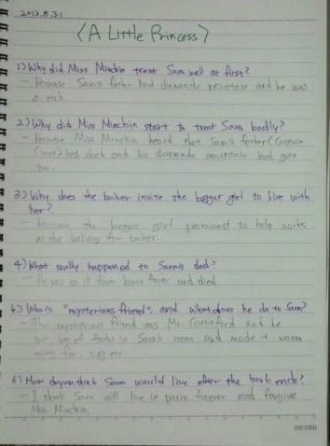 2013.8.31
<A Little Princess>
1) Why did Miss Minchin treat Sara well at first?
- Because Sara's father had diamonds and he was
rich.
2) Why did Miss Minchin start to treat Sara badly?
- Because Miss Minchin heard that Sara's father (Captain
Crewe) has died and his diamonds had gone
3) Why does the baker invite the beggar girl to live with
her?
- Because the beggar girl promised to help
at the bakery for baker
4) What really happened to Sara's dad?
- He was ill from brain fever and died
5) Who is "mysterious friend", and what does he do to Sara?
- The mysterious friend was Mr. Carrisford. And he
put foods in Sara's room and made it warm
using fire, rug etc.
6) How do you think Sara would live after the book ends?
- I think Sara will live in paris forever and forgive
Miss Minchin.